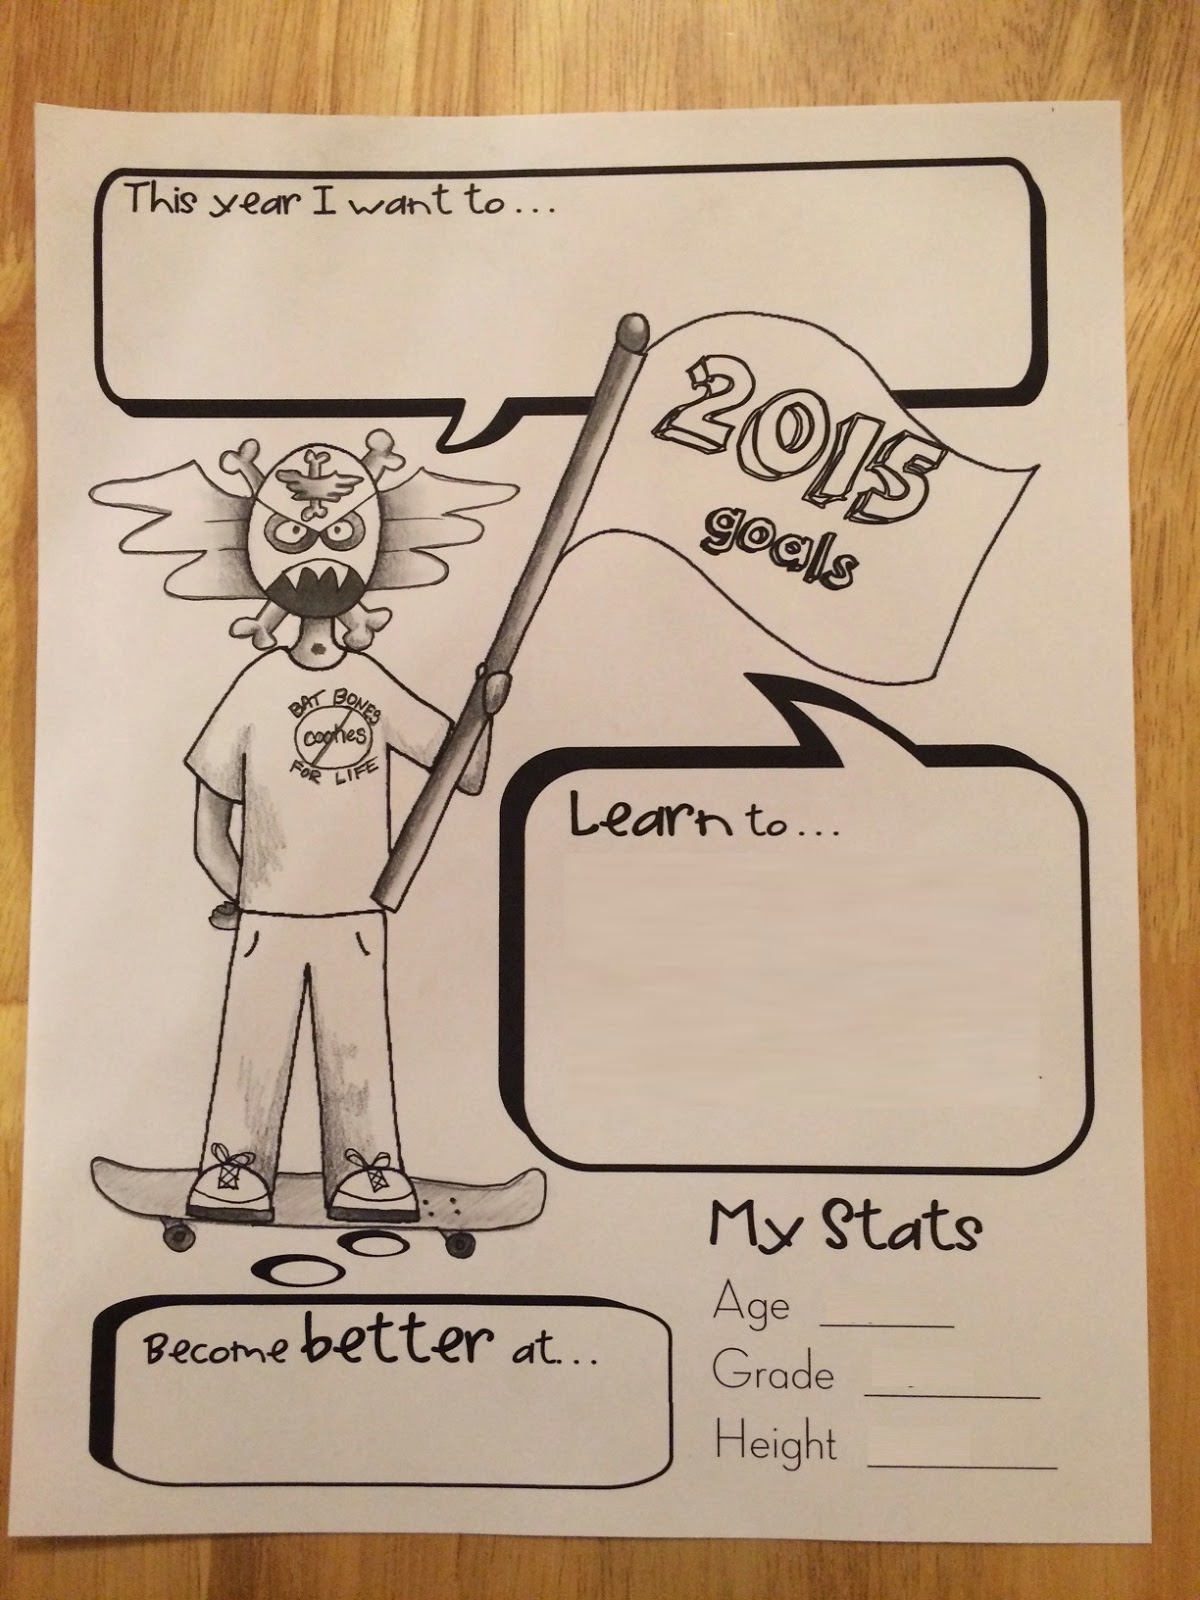 This year I want to...
2015
goals
BAT BONES
cookies
FOR LIFE
Learn to...
My Stats
Age
Grade
Height
Become better at...